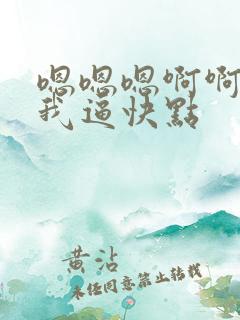 嗯嗯嗯啊啊
我逼快點
黄沾
未经同意禁止转载